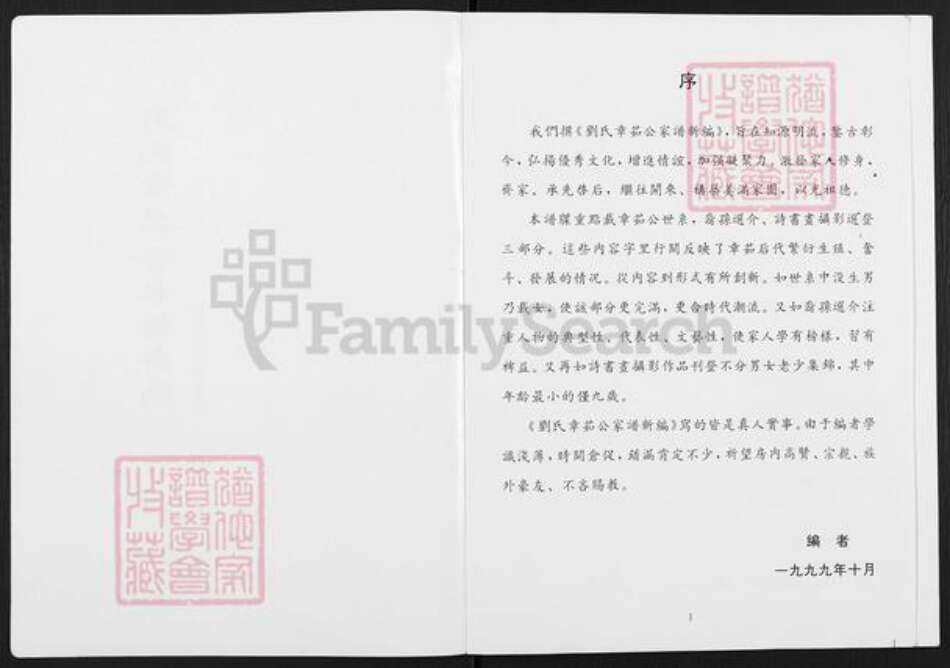 序
我們撰《劉氏章茹公家譜新編》，旨在知源明流，鑒古彰
今，弘揚優秀文化，增進情誼，加强凝聚力。激發家人修身、
齊家。承先啓后，繼往開來、構築美滿家園，以光祖德。
本譜牒重點載章茹公世系，裔孫選介、詩書畫攝影選登
三部分。這些内容字里行間反映了章茹后代繁衍生殖、奮
斗、發展的情况。從内容到形式有所創新。如世系中没生男
乃載女，使該部分更完滿，更合時代潮流。又如裔孫選介注
重人物的典型性、代表性、文藝性，使家人學有榜樣，習有
裨益。又再如詩書畫攝影作品刊登不分男女老少集錦，其中
年齡最小的僅九歲。
《劉氏章茹公家譜新編》寫的皆是真人實事。由于編者學
識淺薄，時間倉促，錯漏肯定不少，祈望房内高賢、宗親、族
外豪友、不吝賜教。
編 者
一九九九年十月
1
猶他家
譜學會
收藏
猶他家
譜學會
收藏
FamilySearch